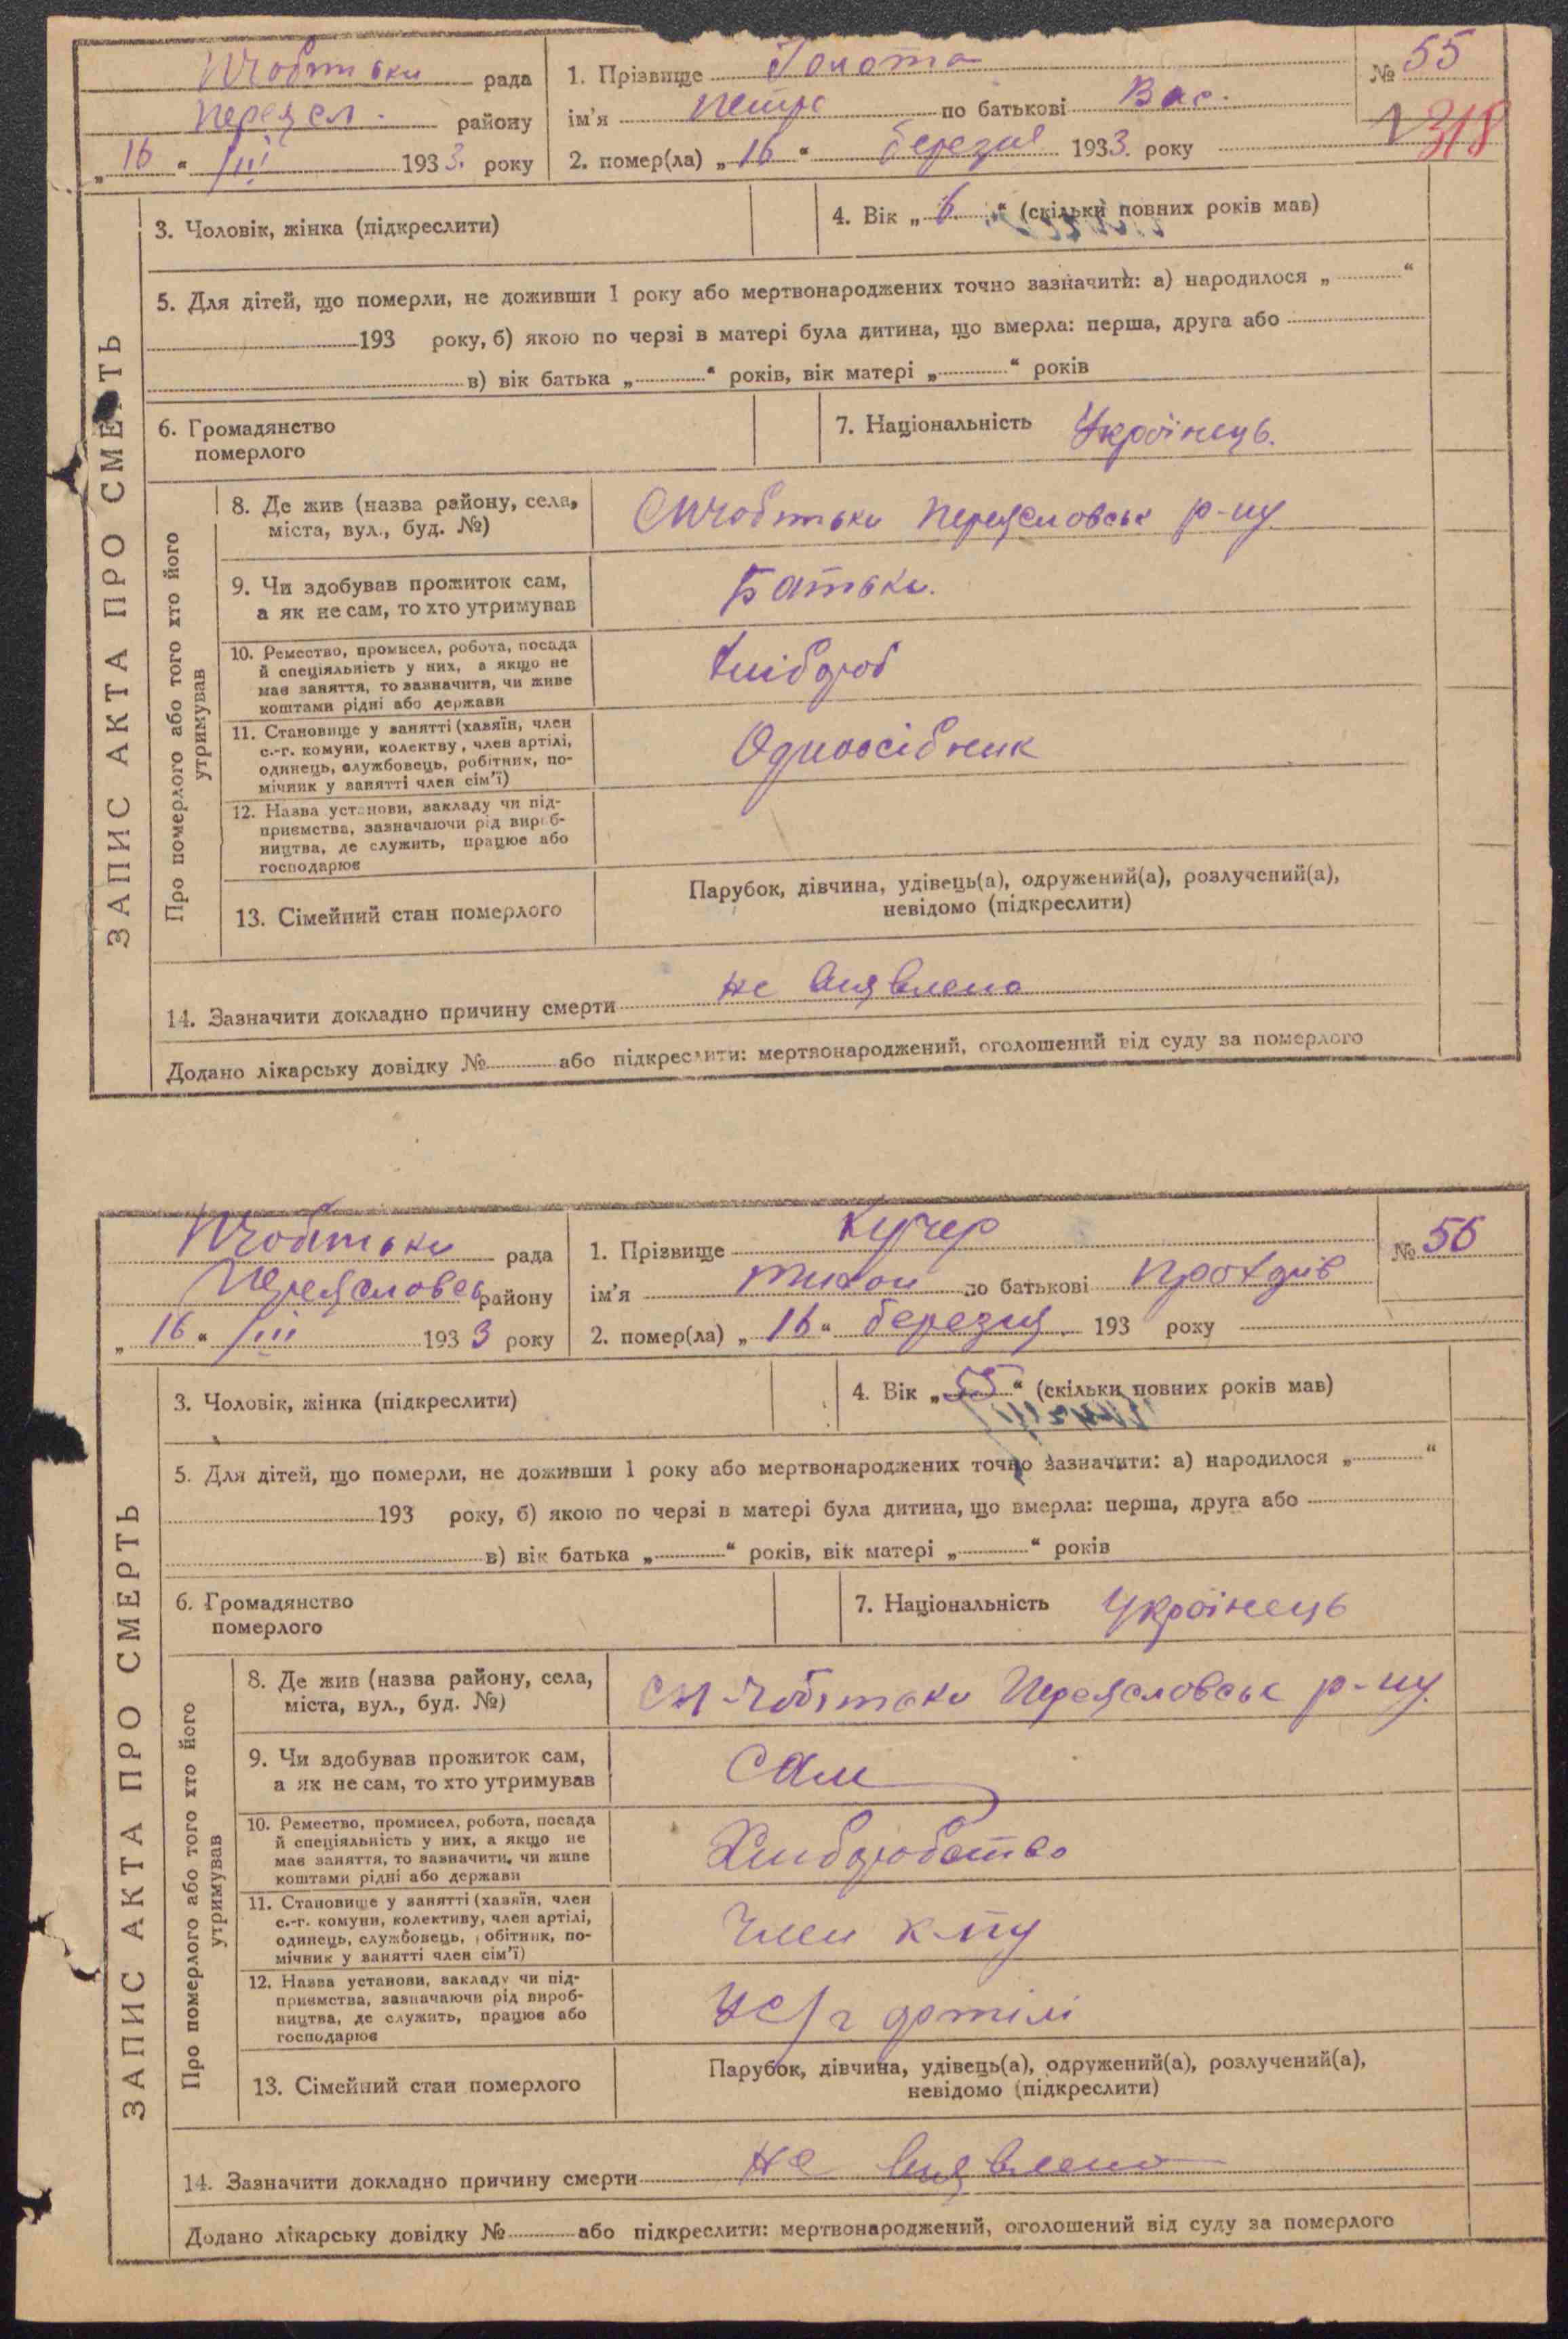 Чобітьки рада
Переясл. районy
„ 16 " III 1933. року
1. Прізвище Голота
ім'я Петро по батькові Вас.
2. помер(ла) „ 16 " березня 1933. року
№ 55
318
ЗАПИС АКТА ПРО СМЕРТЬ
3. Чоловік, жінка (підкреслити)
4. Вік „ 6 " (скільки повних років мав)
5. Для дітей, що померли, не доживши 1 року або мертвонароджених точно зазначити: а) народилося „ "
193 року, б) якою по черзі в матері була дитина, що вмерла: перша, друга або
в) вік батька „ " років, вік матері „ " років
6. Громадянство
померлого
7. Національність Українець.
Про померлого або того хто його
утримував
8. Де жив (назва району, села,
міста, вул., буд. №)
Переяславськ р-ну
9. Чи здобував прожиток сам,
а як не сам, то хто утримував
Батьки.
10. Ремество, промисел, робота, посада
й спеціяльність у них, а якщо не
має заняття, то зазначити, чи живе
коштами рідні або держави
Хлібороб
11. Становище у занятті (хазяїн, член
с.-г. комуни, колектву, член артілі,
одинець, службовець, робітник, по-
мічник у занятті член сім'ї)
Одноосібник
12. Назва установи, закладу чи під-
приємства, зазначаючи рід вироб-
ництва, де служить, працює або
господарює
13. Сімейний стан померлого
Парубок, дівчина, удівець(а), одружений(а), розлучений(а),
невідомо (підкреслити)
14. Зазначити докладно причину смерти не виявлено
Додано лікарську довідку № або підкреслити: мертвонароджений, оголошений від суду за померлого
Чобітьки рада
Переяславськ району
„ 16 " III 1933 року
1. Прізвище Кучер
ім'я Тихон по батькові
2. помер(ла) „ 16 " березня 193 року
№ 56
ЗАПИС АКТА ПРО СМЕРТЬ
3. Чоловік, жінка (підкреслити)
4. Вік „ 55 " (скільки повних років мав)
5. Для дітей, що померли, не доживши 1 року або мертвонароджених точно зазначити: а) народилося „ "
193 року, б) якою по черзі в матері була дитина, що вмерла: перша, друга або
в) вік батька „ " років, вік матері „ " років
6. Громадянство
померлого
7. Національність Українець
Про померлого або того хто його
утримував
8. Де жив (назва району, села,
міста, вул., буд. №)
Переяславськ р-ну
9. Чи здобував прожиток сам,
а як не сам, то хто утримував
Сам
10. Ремество, промисел, робота, посада
й спеціяльність у них, а якщо не
має заняття, то зазначити, чи живе
коштами рідні або держави
Хліборобство
11. Становище у занятті (хазяїн, член
с.-г. комуни, колективу, член артілі,
одинець, службовець, робітник, по-
мічник у занятті член сім'ї)
Член к-пу
12. Назва установи, закладу чи під-
приємства, зазначаючи рід вироб-
ництва, де служить, працює або
господарює
У с/г артілі
13. Сімейний стан померлого
Парубок, дівчина, удівець(а), одружений(а), розлучений(а),
невідомо (підкреслити)
14. Зазначити докладно причину смерти не виявлено
Додано лікарську довідку № або підкреслити: мертвонароджений, оголошений від суду за померлого